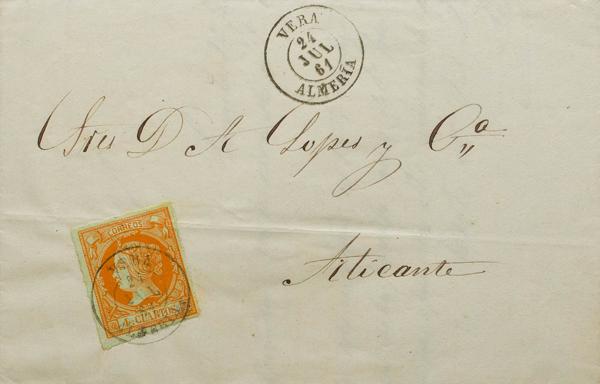 VERA
24
JUL
61
ALMERÍA
Sres D A Lopes y Cª
Alicante
CORREOS
4 CUARTOS